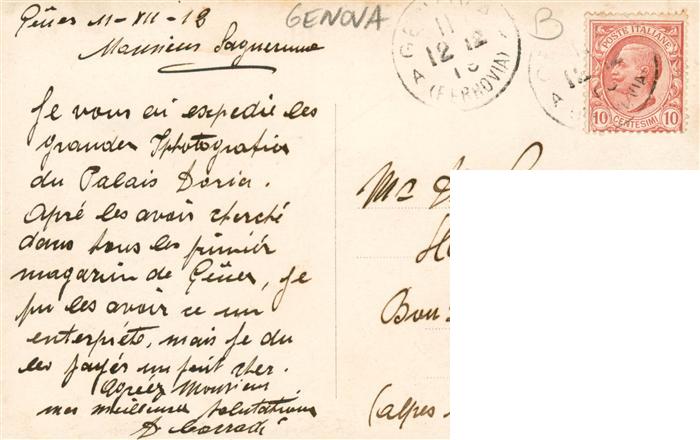 Gênes 11-XII-13
GENOVA
B
Monsieur Saguerenne
11
12 12
13
A
(FERROVIA)
POSTE ITALIANE
10 CENTESIMI 10
Je vous ai expedié les
grandes Photografies
du Palais Doria.
Apré les avoir cherché
dans tous les primier
magazin de Gênes, je
pu les avoir ce un
enterpréte, mais je du
les payés un petit cher.
Agréez Monsieur
mes meilleures salutations
Corradi
Mr
Bou
(alpes